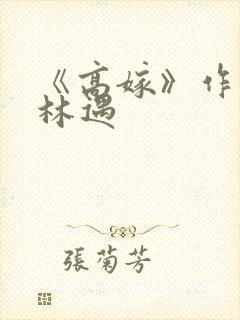 《高嫁》作
林遇
張菊芳